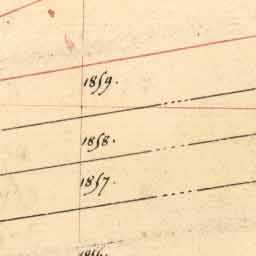 1859.
1858.
1857.